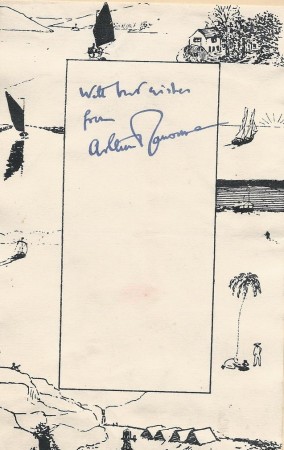 With best wishes
from
Arthur Ransome